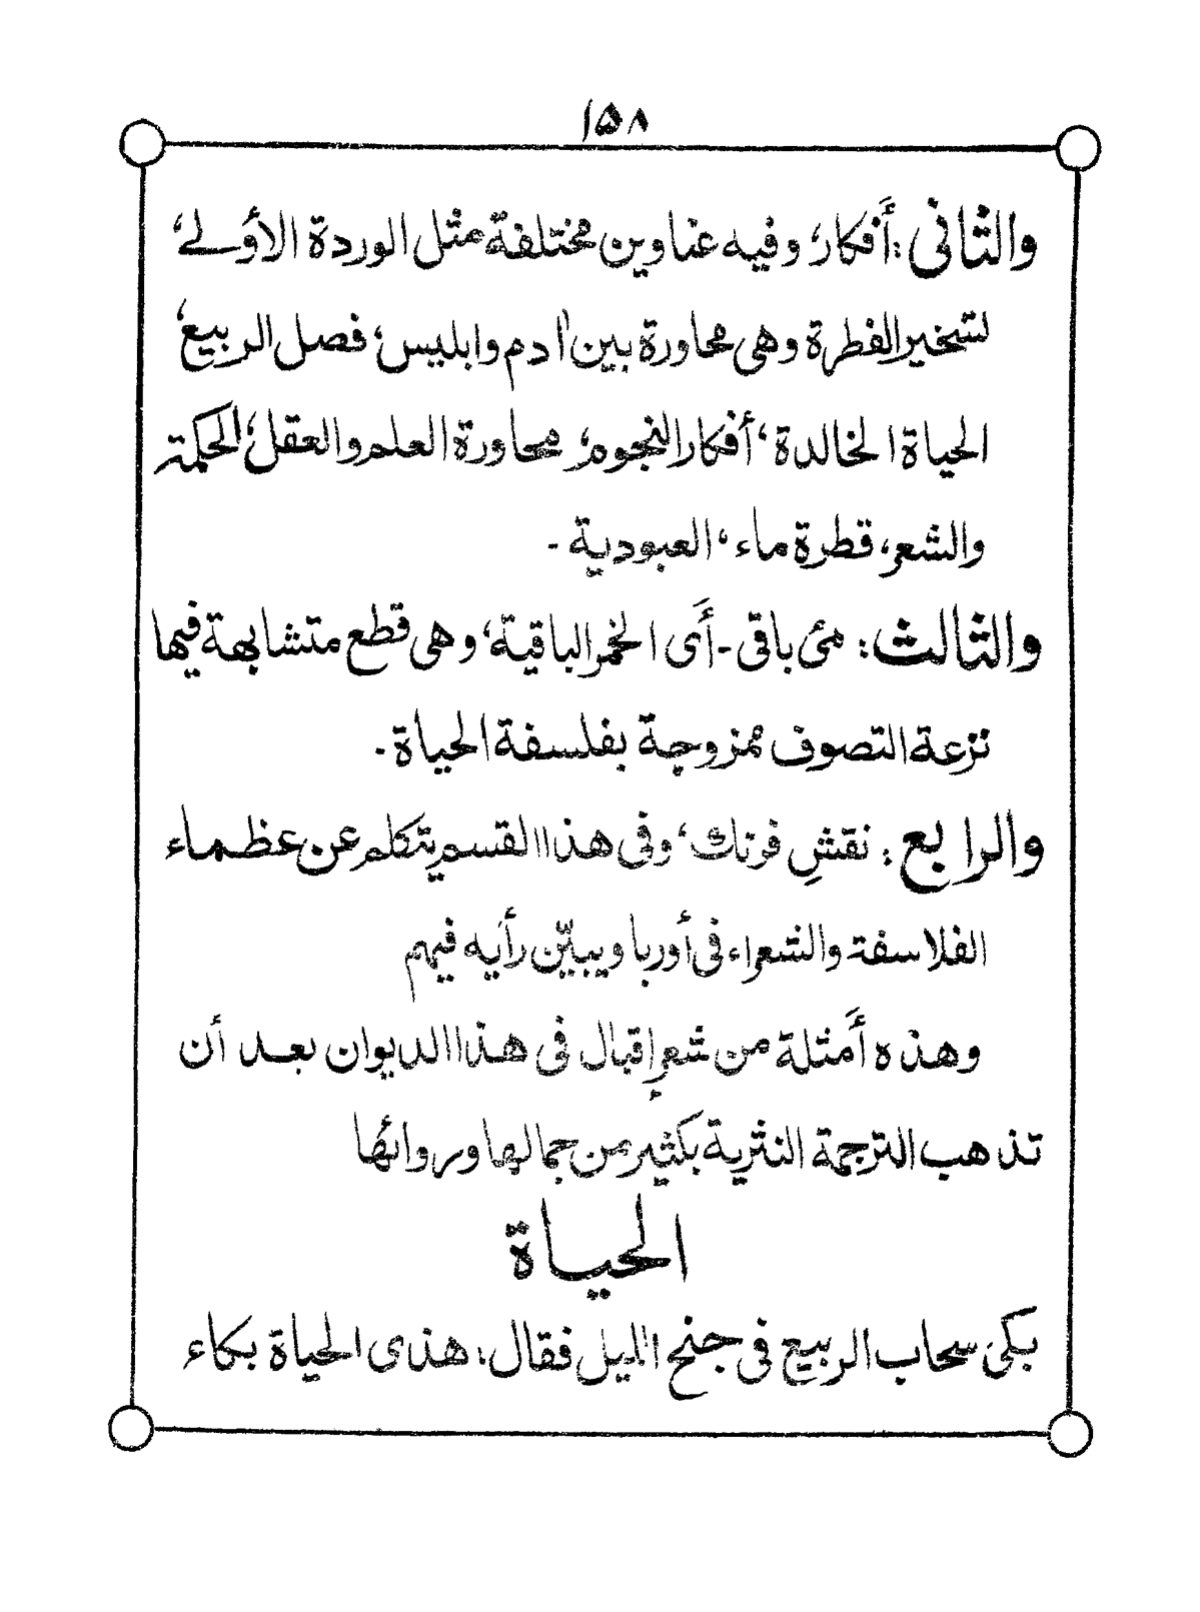 ١٥٨
والثانى: أفكار، وفيه عناوين مختلفة مثل الوردة الأولے،
تسخير الفطرة وهى محاورة بين اٰدم وابليس، فصل الربيع،
الحياة الخالدة، أفكار النجوم، محاورة العلم والعقل، الحكمة
والشعر، قطرة ماء، العبودية -
والثالث: مئ باقى - أَى الخمر الباقية، وهى قطع متشابهة فيها
نزعة التصوف ممزوجة بفلسفة الحياة -
والرابع: نقشِ فرنك، وفى هذا القسم يتكلم عن عظماء
الفلاسفة والشعراء فى أوربا ويبيّن رأيه فيهم
وهذه أَمثلة من شعر إقبال فى هذا الديوان بعد أن
تذهب الترجمة النثرية بكثير من جمالها وروائها
الحياة
بكى سحاب الربيع فى جنح الليل فقال، هذى الحياة بكاء